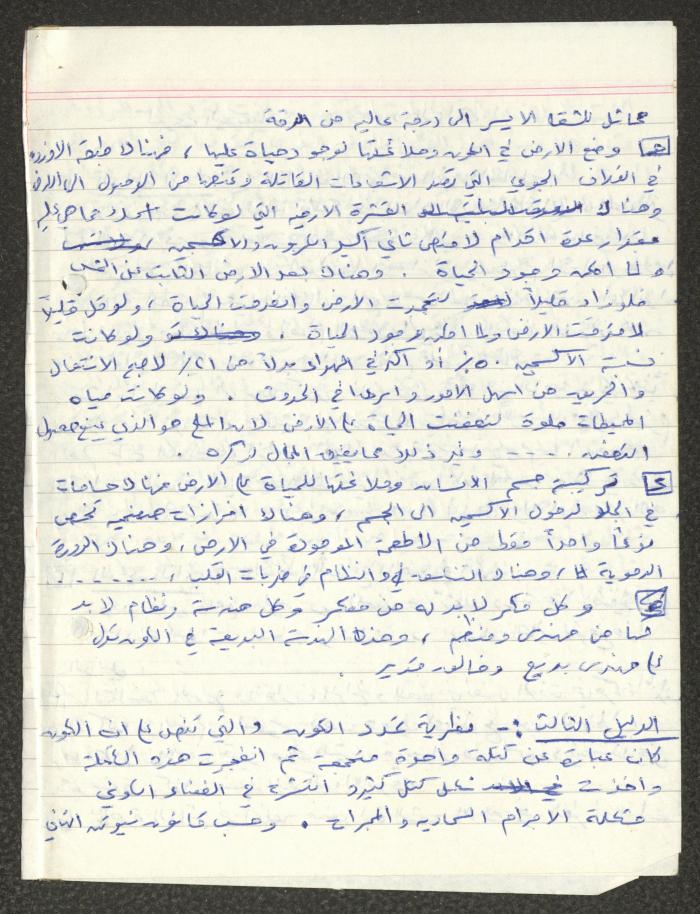 مماثل للشق الايسر الى درجة عالية من الدقة
وضع الارض في الكون وملاءمتها لوجود حياة عليها ، فهناك طبقة الاوزون
في الغلاف الجوي التي تصد الاشعاعات القاتلة وتمنعها من الوصول الى الارض
وهناك القشرة الارضية التي لو كانت اسمك مما هي عليه
بمقدار عدة اقدام لامتص ثاني أكسيد الكربون والاكسجين
ولما امكن وجود الحياة . وهناك بعد الارض الثابت عن الشمس
فلو زاد قليلاً لتجمدت الارض وانعدمت الحياة ، ولو قل قليلاً
لاحترقت الارض ولما امكن وجود الحياة . ولو كانت
نسبة الاكسجين ٥٠٪ أو اكثر في الهواء بدلاً من ٢١٪ لاصبح الاشتعال
والحريق من اسهل الامور واسرعها في الحدوث . ولو كانت مياه
المحيطات حلوة لتعفنت الحياة على الارض لان الملح هو الذي يمنع حصول
التعفن ..... وغير ذلك مما يضيق المجال لذكره .
تركيبة جسم الانسان وملاءمتها للحياة على الارض فهناك مسامات
في الجلد لدخول الاكسجين الى الجسم ، وهناك افرازات تخص
نوعاً واحداً فقط من الأطعمة الموجودة في الارض ، وهناك الدورة
الدموية ، وهناك التناسق والنظام في ضربات القلب ، ........
وكل فكر لا بد له من مفكر وكل هندسة ونظام لا بد
لهما من مهندس ومنظم ، وهذه الهندسة البديعة في الكون تدل
على مهندس بديع وخالق قدير .
الدليل الثالث :- نظرية تمدد الكون والتي تنص على ان الكون
كان عبارة عن كتلة واحدة متجمعة ثم انفجرت هذه الكتلة
واخذت شكل كتل كثيرة انتشرت في الفضاء الكوني
مشكلة الاجرام السماوية والمجرات . وحسب قانون نيوتن الثاني